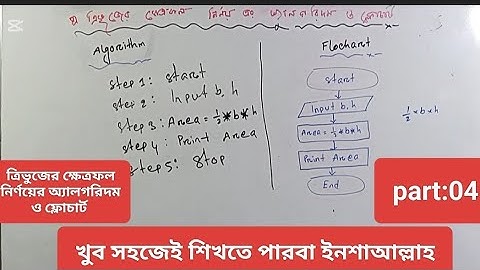 ত্রিভুজের ক্ষেত্রফল নির্ণয় এর অ্যালগরিদম ও ফ্লোচার্ট
Algorithm
Step 1: Start
Step 2: Input b, h
Step 3: Area = 1/2 * b * h
Step 4: Print Area
Step 5: Stop
Flochart
Start
Input b, h
Area = 1/2 * b * h
Print Area
End
1/2 * b * h
ত্রিভুজের ক্ষেত্রফল
নির্ণয়ের অ্যালগরিদম
ও ফ্লোচার্ট
part:04
খুব সহজেই শিখতে পারবা ইনশাআল্লাহ